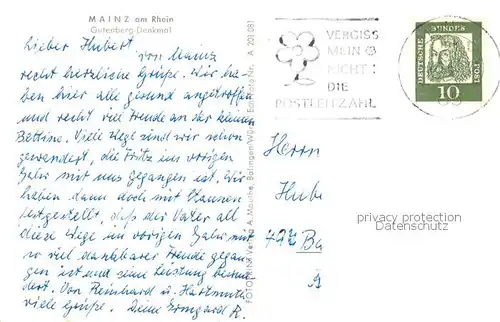 MAINZ am Rhein
Gutenberg-Denkmal
Lieber Hubert,
von Mainz
recht herzliche Grüße. Wir ha-
ben hier alle gesund angetroffen
und recht viel Freude an der kleinen
Bettina. Viele Wege sind wir schon
gewandert, die Fritz im vorigen
Jahr mit uns gegangen ist. Wir
haben dann doch mit Staunen
festgestellt, daß der Vater all
diese Wege im vorigen Jahr mit
so viel dankbarer Freude gegan-
gen ist und seine Leistung bewun-
dert. Von Reinhard u. Hartmut
viele Grüße. Deine Irmgard R.
FOTOPRINT A. Mauthe, Balingen/Württ. A 201 081
VERGISS
MEIN
NICHT
DIE
POSTLEITZAHL
DEUTSCHE BUNDESPOST
10
Herrn
Hube
Ba
privacy protection
Datenschutz